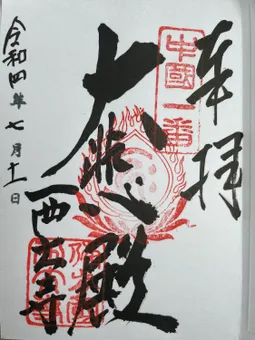 奉拝
中國一番
大悲殿
西大寺
令和四年七月十一日